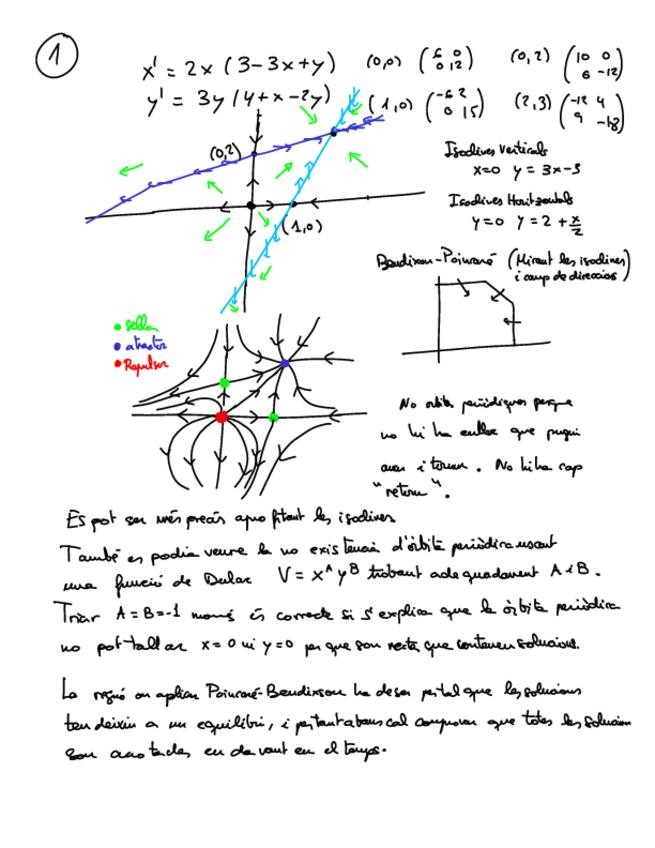 1
x' = 2x (3-3x+y)
y' = 3y (4+x-2y)
(0,0) (6 0
0 12)
(0,2) (10 0
6 -12)
(1,0) (-6 2
0 15)
(2,3) (-12 4
9 -18)
(0,2)
(1,0)
Isoclines Verticals
x=0 y = 3x-3
Isoclines Horitzontals
y=0 y = 2 + x/2
Bendixson-Poincaré (Mirant les isoclines
i camp de direccions)
• sella
• atractor
• Repulsor
No òrbites periòdiques perque
no hi ha enlloc que pugui
anar i tornar. No hi ha cap
"retorn".
Es pot ser més precís aprofitant les isoclines
També es podia veure la no existencia d'òrbita periòdica usant
una funció de Dulac V = x^A y^B trobant adequadament A i B.
Triar A = B = -1 només és correcte si s'explica que la òrbita periòdica
no pot tallar x = 0 ni y = 0 per que son rectes que contenen solucions.
La regió on apliqui Poincaré-Bendixson ha de ser per tal que les solucions
tendeixin a un equilibri, i per tant abans cal comprovar que totes les solucions
son acotades en davant en el temps.